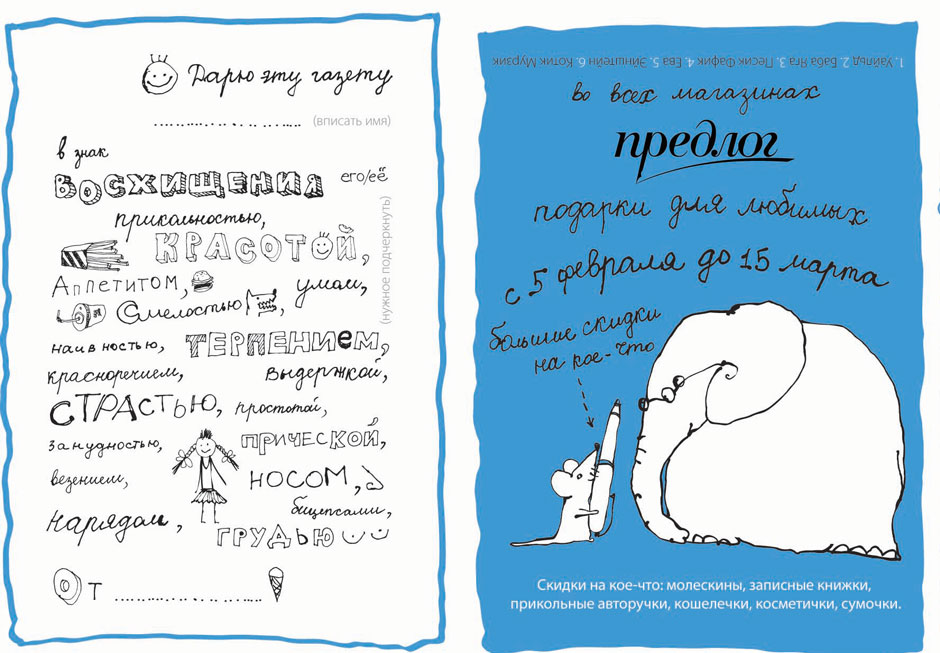 Дарю эту газету
(вписать имя)
в знак
ВОСХИЩЕНИЯ его/её
прикольностью,
КРАСОТОЙ,
Аппетитом, умом,
Смелостью,
(нужное подчеркнуть)
наивностью, ТЕРПЕНИЕМ,
красноречием, выдержкой,
СТРАСТЬЮ, простотой,
занудностью, ПРИЧЕСКОЙ,
везением, НОСОМ,
бицепсами,
нарядом, ГРУДЬЮ
От
1. Уайльд 2. Баба Яга 3. Песик Фафик 4. Ева 5. Эйнштейн 6. Котик Мурзик
во всех магазинах
предлог
подарки для любимых
с 5 февраля до 15 марта
большие скидки
на кое-что
Скидки на кое-что: молескины, записные книжки,
прикольные авторучки, кошелечки, косметички, сумочки.